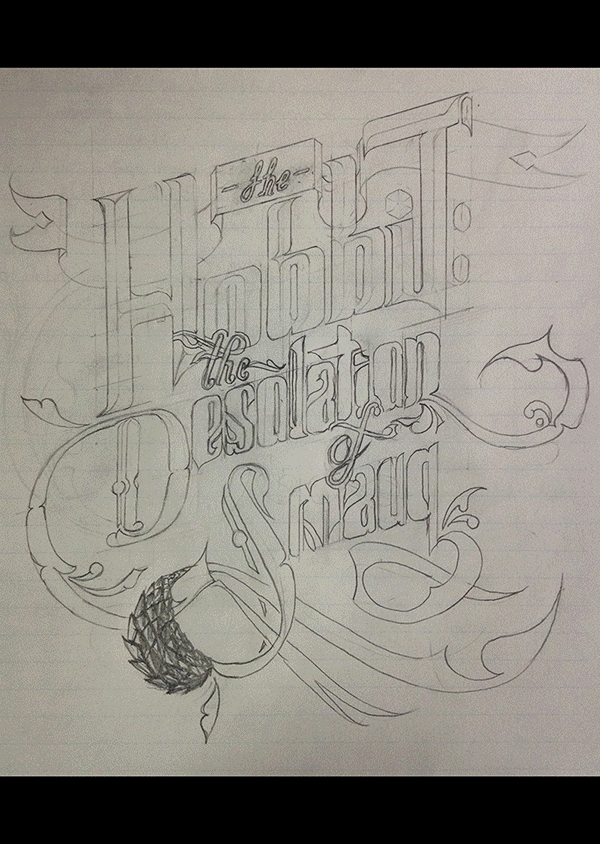 - the -
Hobbit:
the
Desolation
of
Smaug